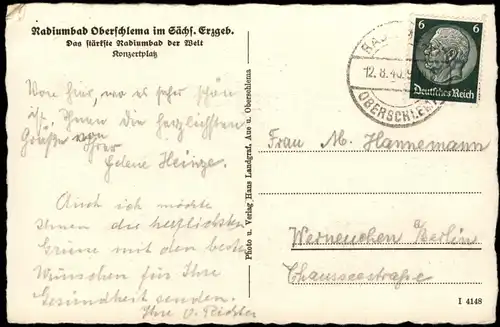 Radiumbad Oberschlema im Sächs. Erzgeb.
Das stärkste Radiumbad der Welt
Konzertplatz
Von hier, wo es sehr schön
ist, Ihnen die herzlichsten
Grüße von Ihrer
Helene Heinze.
Auch ich möchte
Ihnen die herzlichsten
Grüße mit den besten
Wünschen für Ihre
Gesundheit senden.
Ihre
Photo u. Verlag Hans Landgraf, Aue u. Oberschlema
6 6
Deutsches Reich
RAD
12.8.40
OBERSCHLEMA
Frau M. Hannemann
Werneuchen b/Berlin
Chausseestraße
I 4148